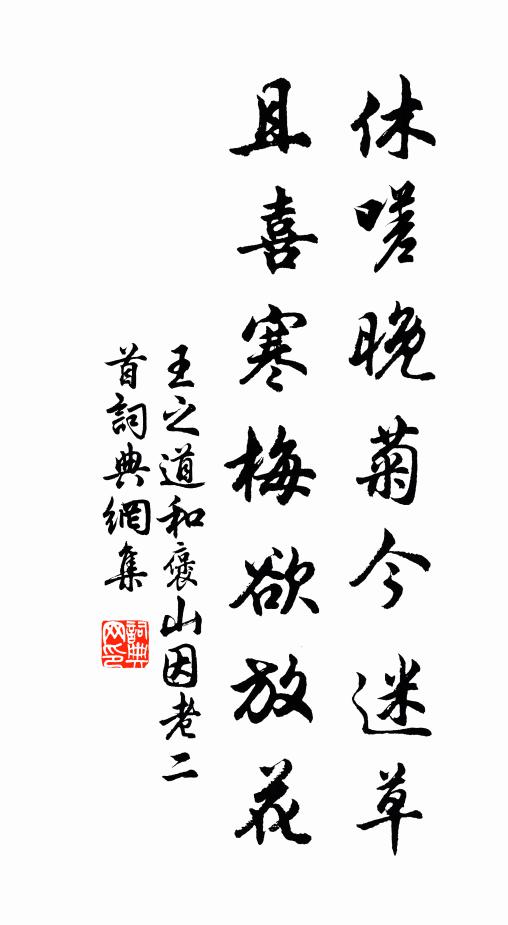 休嗟晚菊今迷草
且喜寒梅欲放花
王之道和褒山因老二
首詞典網集
詞典
网印